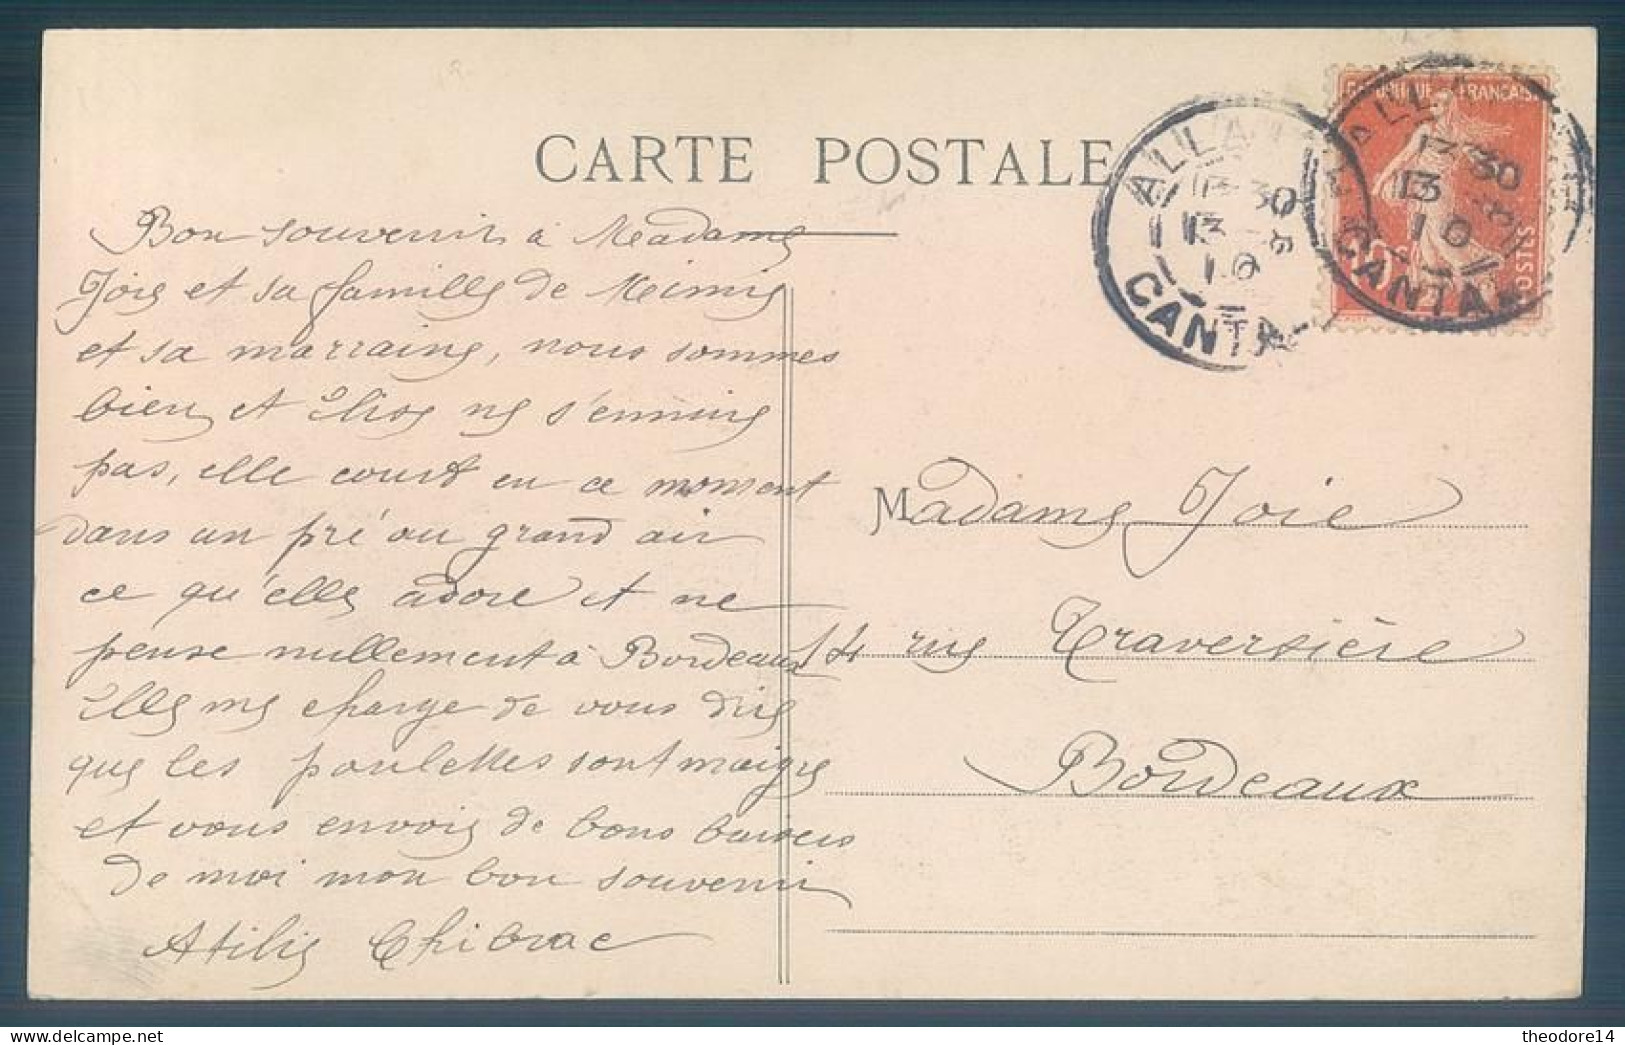 CARTE POSTALE
RÉPUBLIQUE FRANÇAISE
POSTES
ALLA
13 30
13 -8
10
CANTAL
ALLA
13 30
13 -8
10
CANTAL
Bon souvenir à Madame
Joie et sa famille de Mimie
et sa marraine, nous sommes
bien et Elise ne s'ennuie
pas, elle court en ce moment
dans un pré au grand air
ce qu'elle adore et ne
pense nullement à Bordeaux
Elle me charge de vous dire
que les poulettes sont maigre
et vous envoie de bons baisers
de moi mon bon souvenir
Atilie Chibrac
Madame Joie
14 rue Traversière
Bordeaux
theodore14